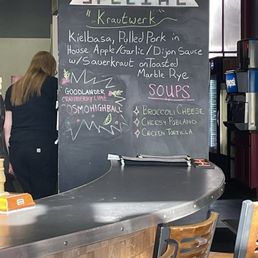 SPECIAL
"Krautwerk"
Kielbasa, Pulled Pork in
House Apple/Garlic/Dijon Sauce
w/Sauerkraut on Toasted
Marble Rye
GOODLANDER
CRANBERRY LIME
COSMOHIGHBALL
SOUPS
BROCCOLI CHEESE
CHEESY POBLANO
CHICKEN TORTILLA